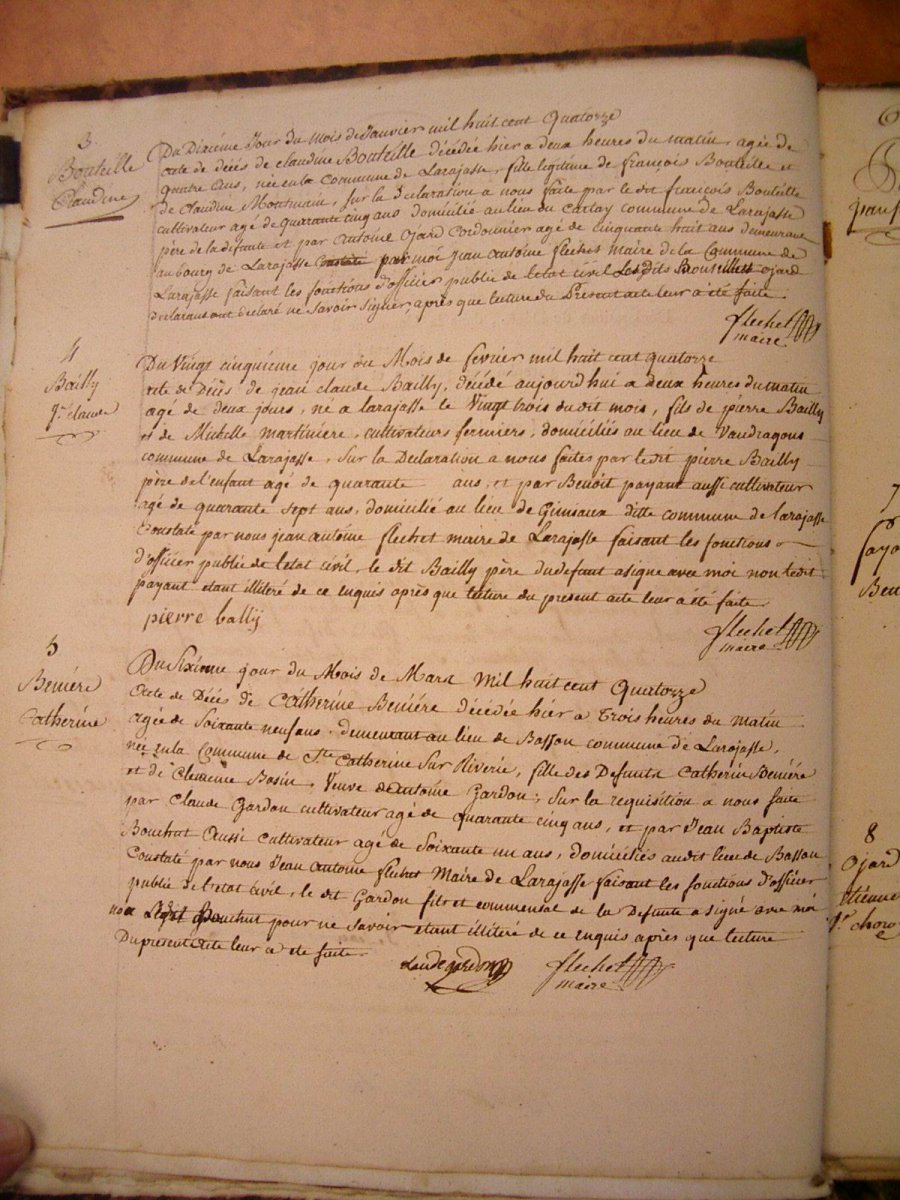 3
Bouteille
Claudine
Du Dixiéme Jour du mois de Janvier mil huit cent Quatorze
acte de décès de claudine Bouteille décédée hier a deux heures du matin agée de
quatre ans, née en la commune de Larajasse, fille légitime de françois Bouteille et
de Claudine Montmain, sur la Declaration a nous faite par le dit françois Bouteille
cultivateur agé de quarante cinq ans domicilié au lieu du commune de Larajasse
père de la defunte et par antoine ojard Cordonnier agé de cinquante huit ans demeurant
au bourg de Larajasse constaté par moi jean antoine flechet maire de la Commune de
Larajasse faisant les fonctions d'officier public de l'etat civil Lesdits Bouteille et ojard
declarans ont declaré ne savoir signer, après que lecture du Present acte leur a été faite.
flechet
maire
4
Bailly
jn claude
Du Vingt cinquieme jour du Mois de fevrier mil huit cent quatorze
acte de Décès de jean claude Bailly, décédé aujourd'hui a deux heures du matin
agé de deux jours, né a larajasse le Vingt trois du dit mois, fils de pierre Bailly
et de Michelle martiniere, cultivateurs fermiers, domiciliés au lieu de Vaudragons
commune de Larajasse, Sur la Declaration a nous faites par ledit pierre Bailly
père de l'enfant agé de quarante ans, et par Benoit payant aussi cultivateur
agé de quarante sept ans, domicilié au lieu de Gimsaux ditte commune de larajasse
Constaté par nous jean antoine flechet maire de Larajasse faisant les fonctions
d'officier public de letat civil, le dit Bailly père du defunt a signé avec moi non ledit
payant etant illiteré de ce enquis après que lecture du present acte leur a été faite
pierre bally
flechet
maire
5
Beniére
Catherine
Du Sixieme jour du Mois de Mars Mil huit cent Quatorze
acte de Décès de Catherine Beniére décédée hier a trois heures du matin
agée de Soixante neuf ans, demeurant au lieu de Basson commune de Larajasse,
née en la Commune de Ste Catherine Sur Riverie, fille des Defunts Catherin Beniére
et de Clemence Bosin, Veuve d'antoine Gardon; Sur la requisition a nous faite
par Claude Gardon cultivateur agé de quarante cinq ans, et par Jean Baptiste
Bouchut Aussi cultivateur agé de Soixante un ans, domiciliés audit lieu de Basson
Constaté par nous Jean antoine flechet Maire de Larajasse faisant les fonctions d'officier
public de l'etat civil, le dit Gardon fils et commensal de la Defunte a signé avec moi
non Ledit Bouchut pour ne Savoir etant illiteré de ce enquis après que lecture
Du present acte leur a été faite.
Laude gardon
flechet
maire
7
8
Ojard